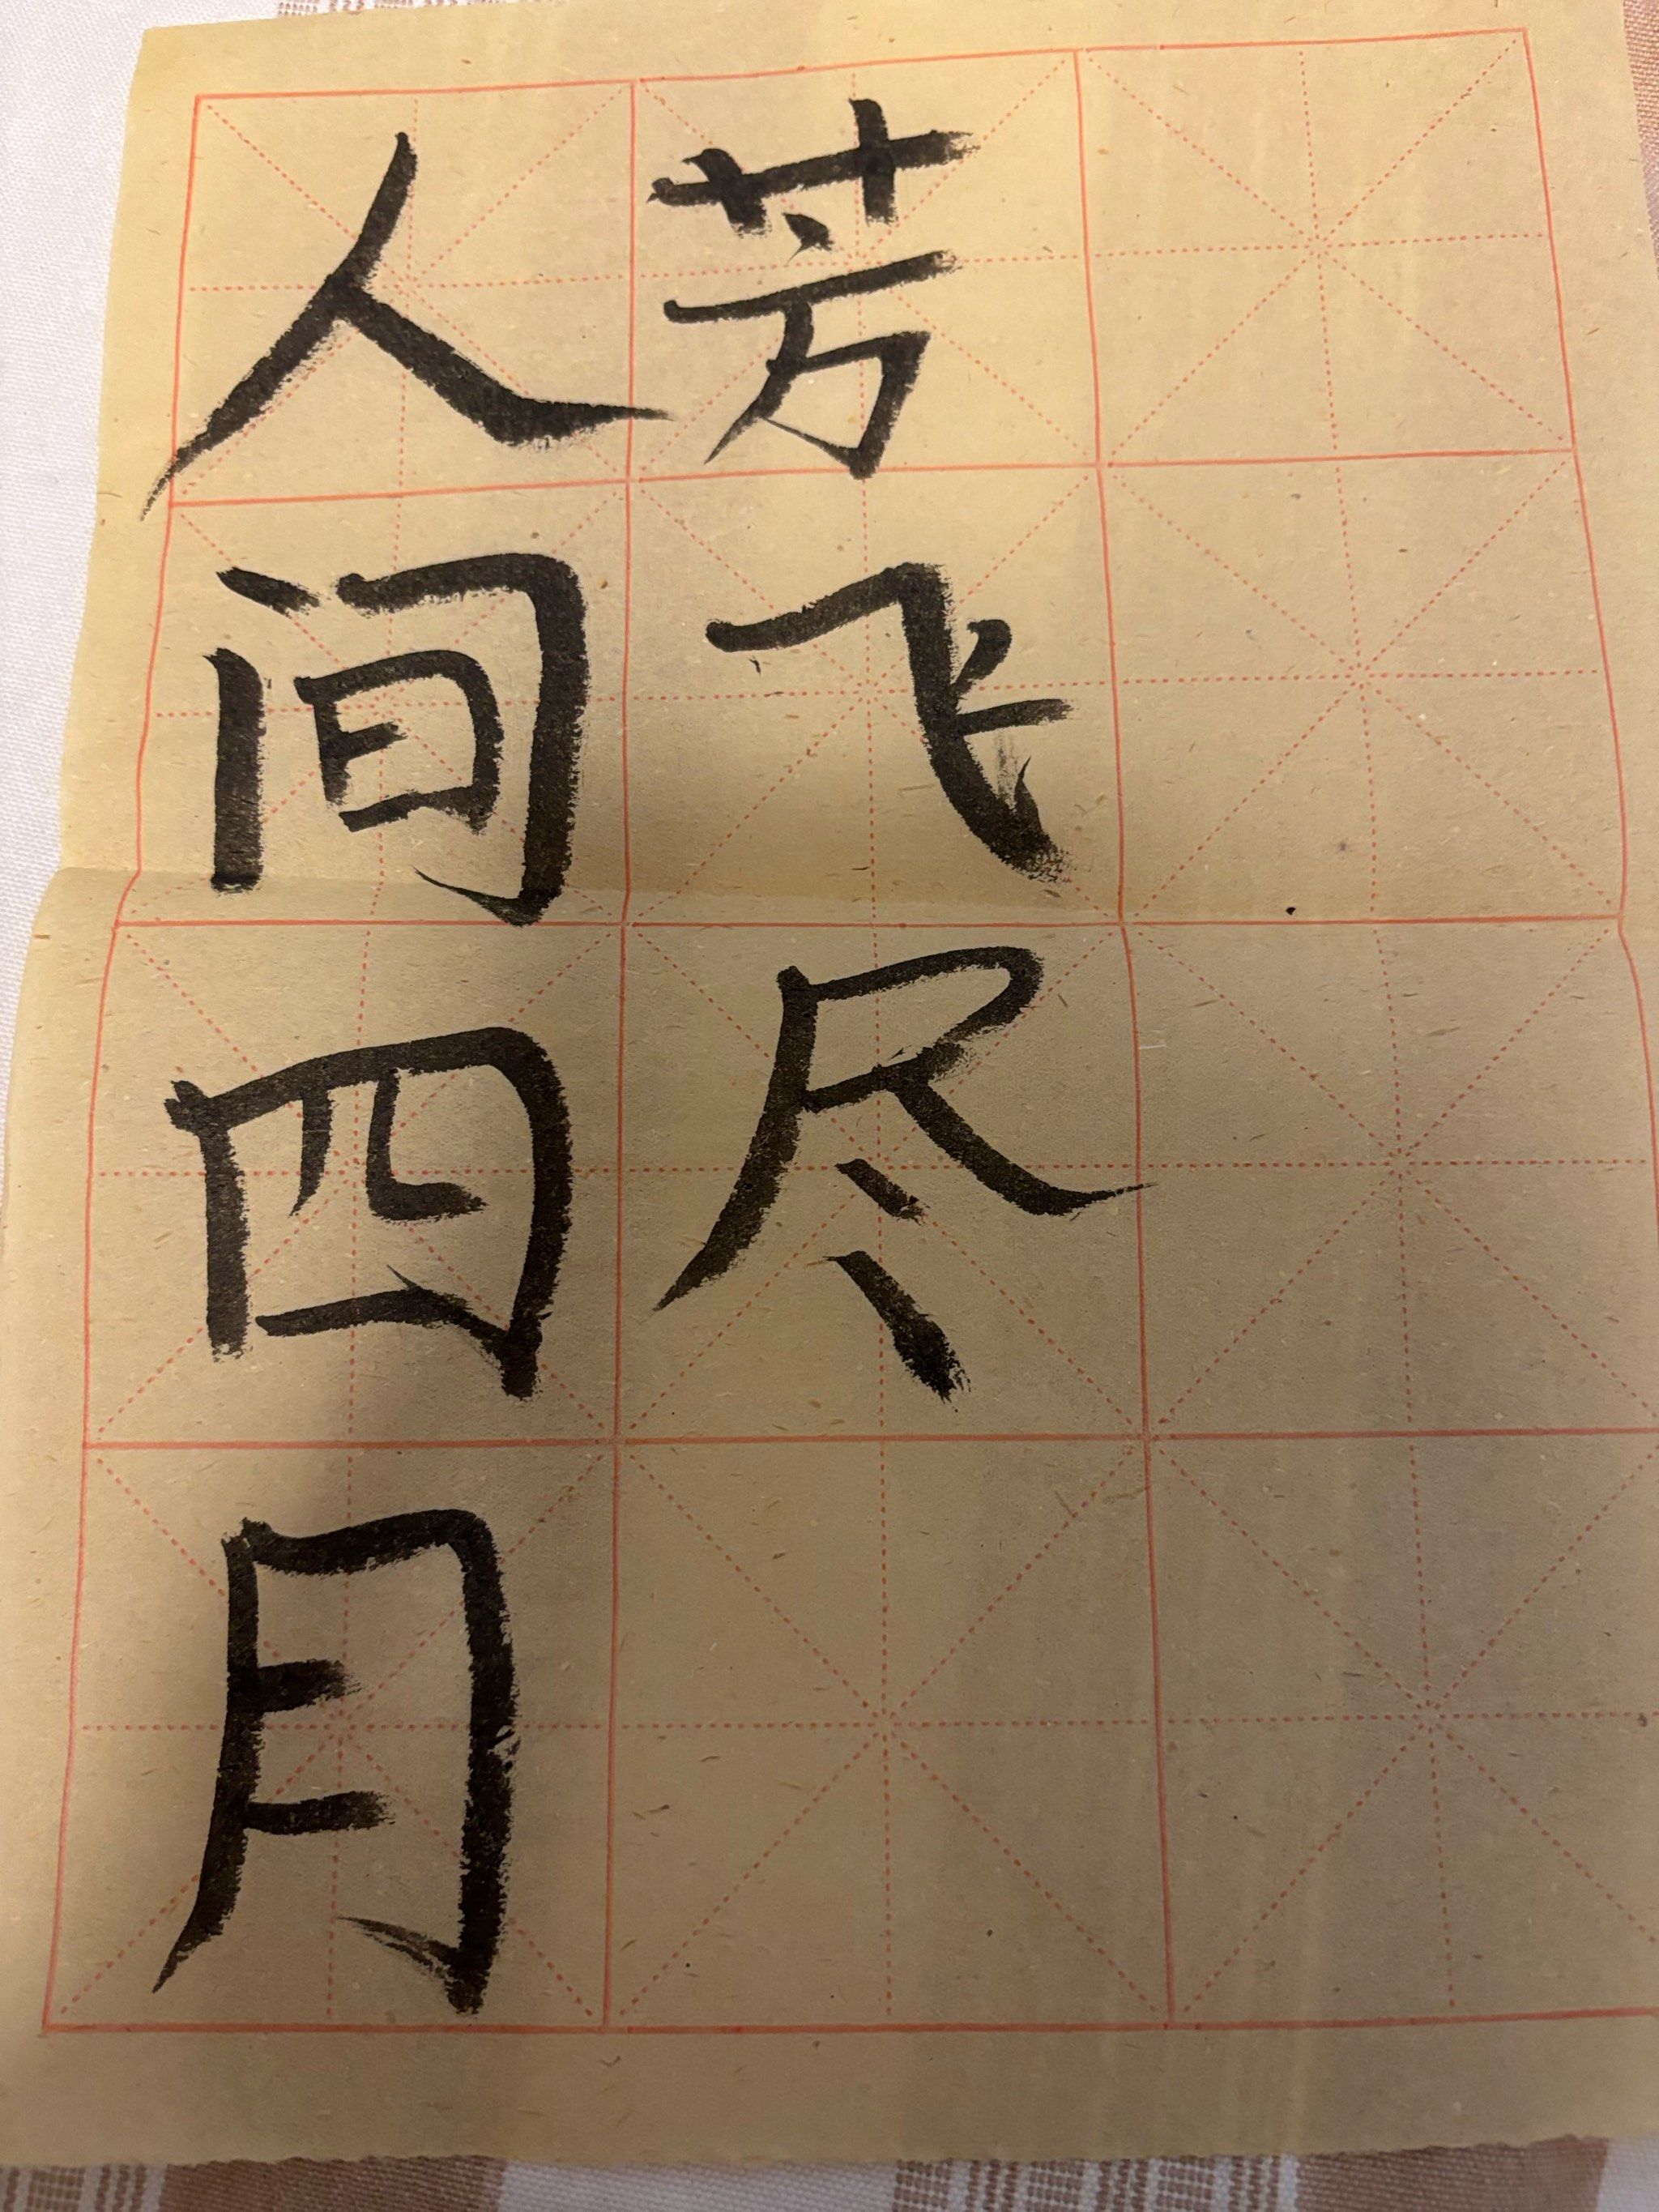 人间四月
芳飞尽